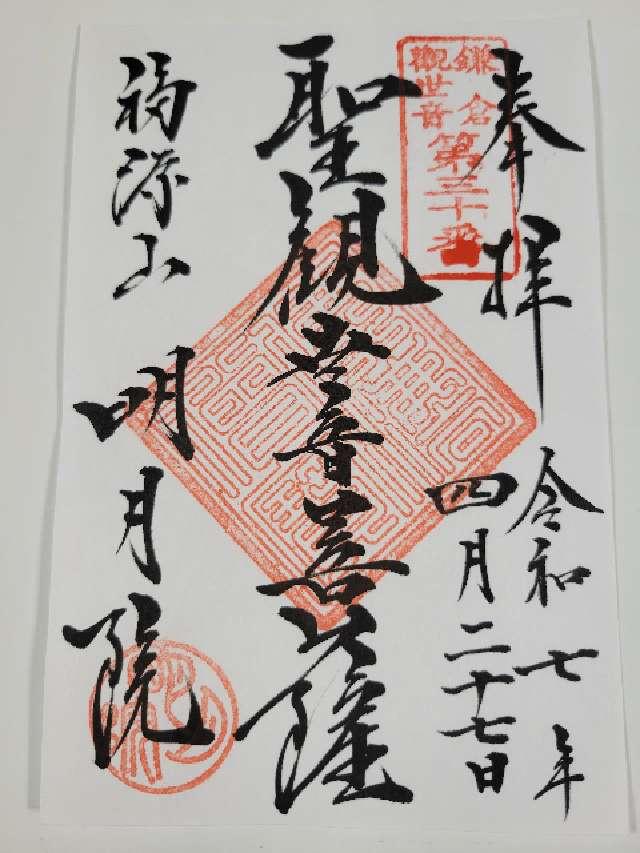 奉拝
令和七年
四月二十七日
鎌倉
觀世音
第三十番
聖観世音菩薩
福源山
明月院